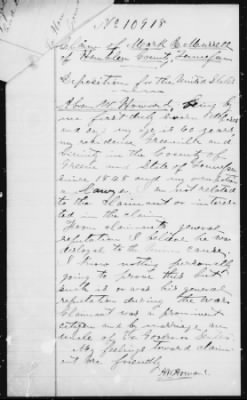 No 10918
Claim of Mark E Murrell
of Hamblen County Tennessee
Deposition for the United States
Abram W. Howard, being by
me first duly sworn deposed
and say my age is 60 years,
my residence Greenville and
vicinity in the County of
Greene and State of Tennessee
since 1828 and my occupation
a Lawyer I am not related
to the Claimant or interes-
ted in the claim
From claimants general
reputation I believe he was
disloyal to the Union cause,
I know nothing personally
going to prove this but
such is or was his general
reputation during the war.
Claimant was a prominent
citizen and by marriage an
uncle of the
My feelings toward claim-
ant are friendly
Howard